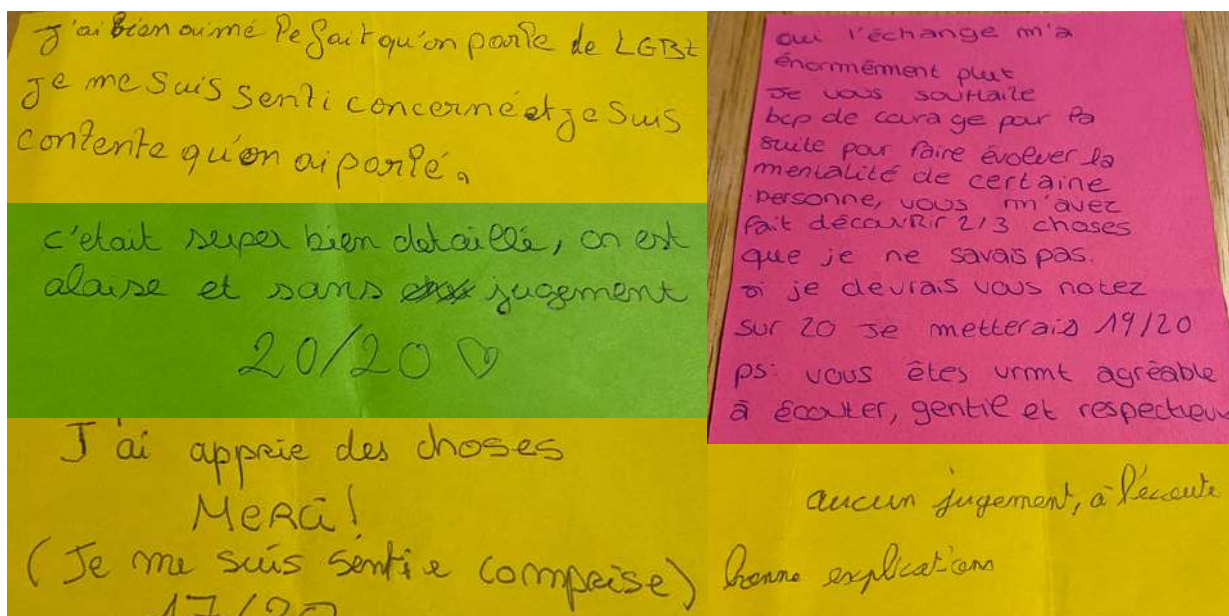 J'ai bien aimé le fait qu'on parle de LGBT
Je me suis senti concerné et je suis
contente qu'on ai parlé.
c'etait super bien detaillé, on est
alaise et sans jugement
20/20 ♡
J'ai apprie des choses
Merci!
(Je me suis sentie comprise)
17/20
oui l'échange m'a
énormément plut
Je vous souhaite
bcp de courage pour la
suite pour faire évoluer la
mentalité de certaine
personne, vous m'avez
fait découvrir 2/3 choses
que je ne savais pas.
si je devrais vous notez
sur 20 je metterais 19/20
ps: vous êtes vrmt agréable
à écouter, gentil et respectueu
aucun jugement, à l'écoute
bonne explications